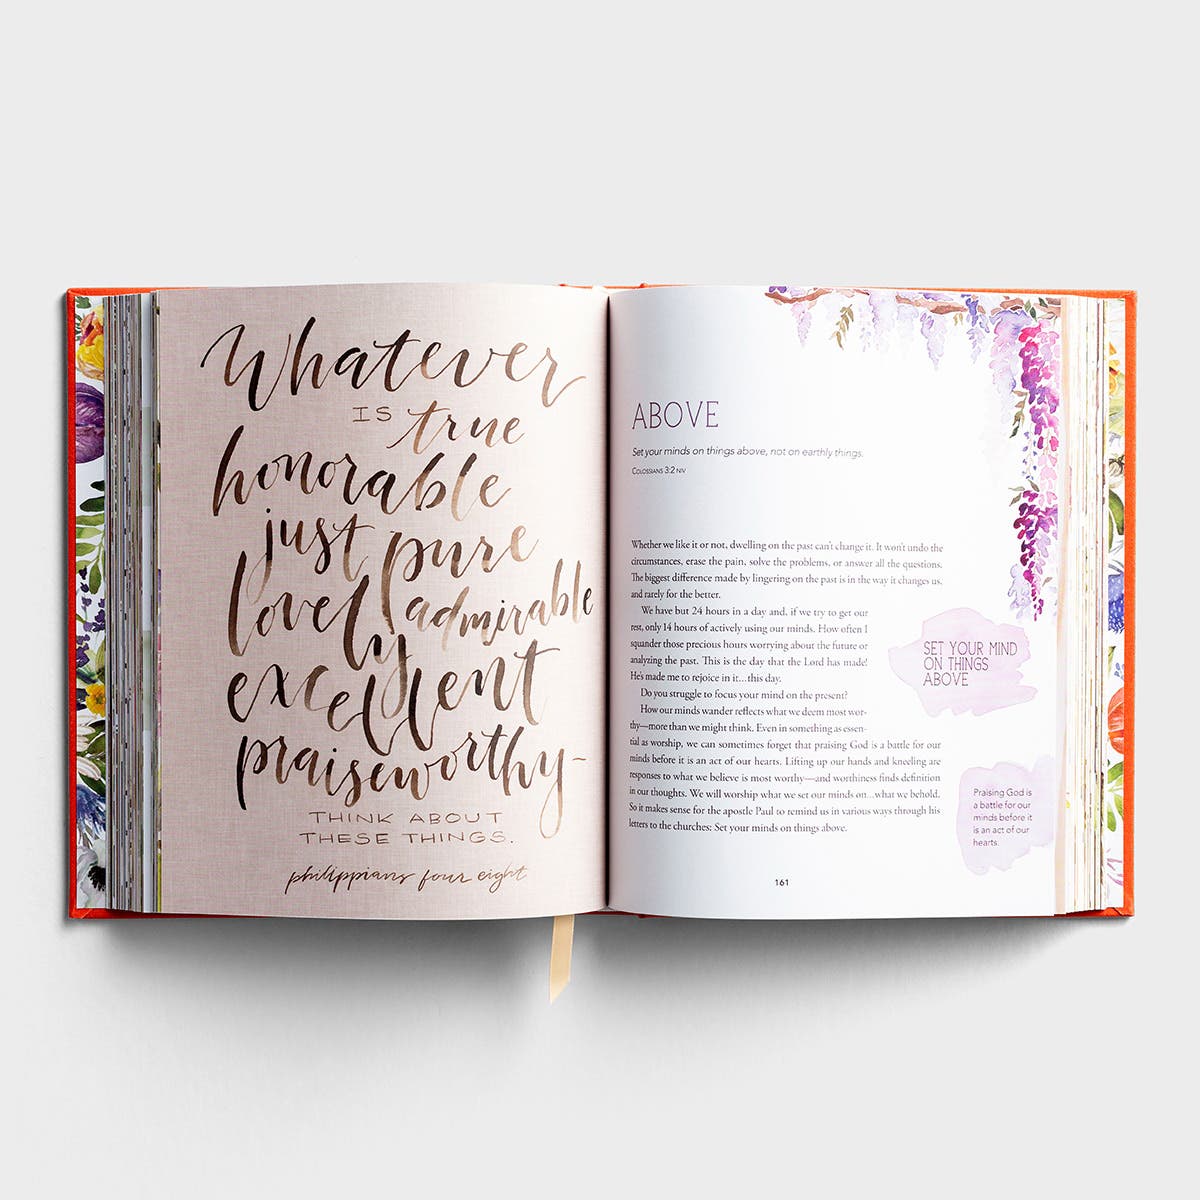 Whatever
IS true
honorable
just pure
lovely admirable
excellent
praiseworthy-
THINK ABOUT
THESE THINGS.
philippians four eight
ABOVE
Set your minds on things above, not on earthly things.
COLOSSIANS 3:2 NIV
Whether we like it or not, dwelling on the past can't change it. It won't undo the
circumstances, erase the pain, solve the problems, or answer all the questions.
The biggest difference made by lingering on the past is in the way it changes us,
and rarely for the better.
We have but 24 hours in a day and, if we try to get our
rest, only 14 hours of actively using our minds. How often I
squander those precious hours worrying about the future or
analyzing the past. This is the day that the Lord has made!
He's made me to rejoice in it...this day.
Do you struggle to focus your mind on the present?
How our minds wander reflects what we deem most wor-
thy—more than we might think. Even in something as essen-
tial as worship, we can sometimes forget that praising God is a battle for our
minds before it is an act of our hearts. Lifting up our hands and kneeling are
responses to what we believe is most worthy—and worthiness finds definition
in our thoughts. We will worship what we set our minds on...what we behold.
So it makes sense for the apostle Paul to remind us in various ways through his
letters to the churches: Set your minds on things above.
SET YOUR MIND
ON THINGS
ABOVE
Praising God is
a battle for our
minds before it
is an act of our
hearts.
161